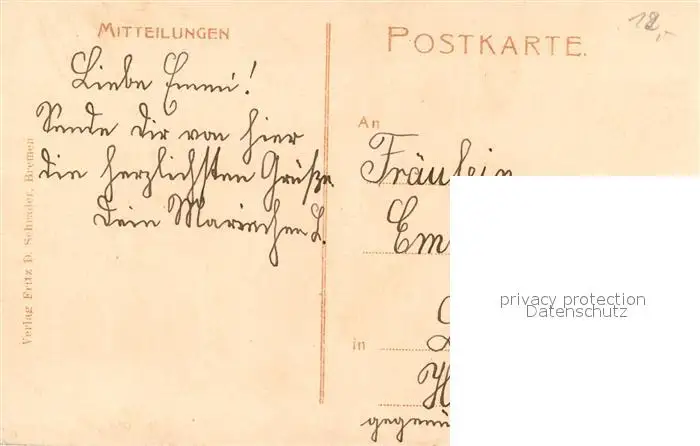 MITTEILUNGEN
Liebe Emmi!
Sende Dir von hier
die herzlichsten Grüße
Dein Mariechen L.
Verlag Fritz D. Schrader, Bremen
POSTKARTE.
18,-
An
Fräulein
Em
in
H
gegenü
privacy protection
Datenschutz